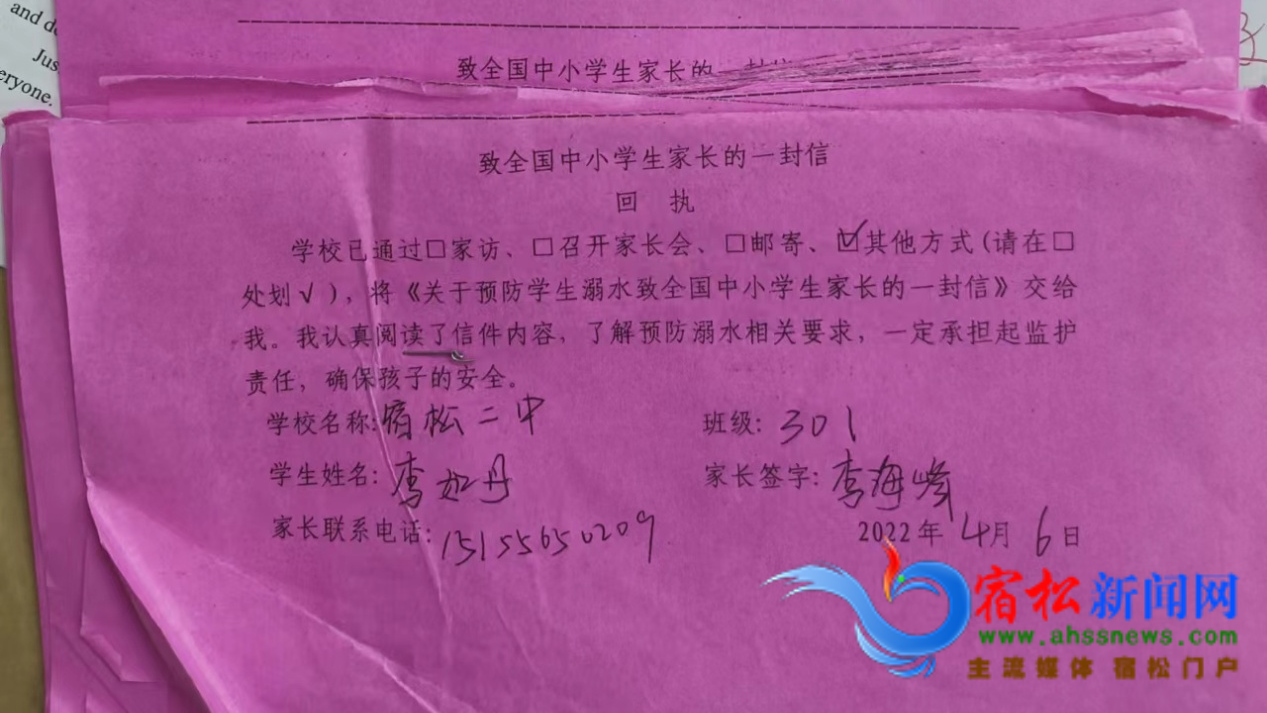 and de
Jus
eryone.
致全国中小学生家长的一封信
致全国中小学生家长的一封信
回 执
学校已通过□家访、□召开家长会、□邮寄、☑其他方式(请在□
处划√),将《关于预防学生溺水致全国中小学生家长的一封信》交给
我。我认真阅读了信件内容,了解预防溺水相关要求,一定承担起监护
责任,确保孩子的安全。
学校名称:宿松二中 班级:301
学生姓名:李如丹 家长签字:李海峰
家长联系电话:15155650209 2022年4月6日
宿松新闻网
www.ahssnews.com
主流媒体 宿松门户